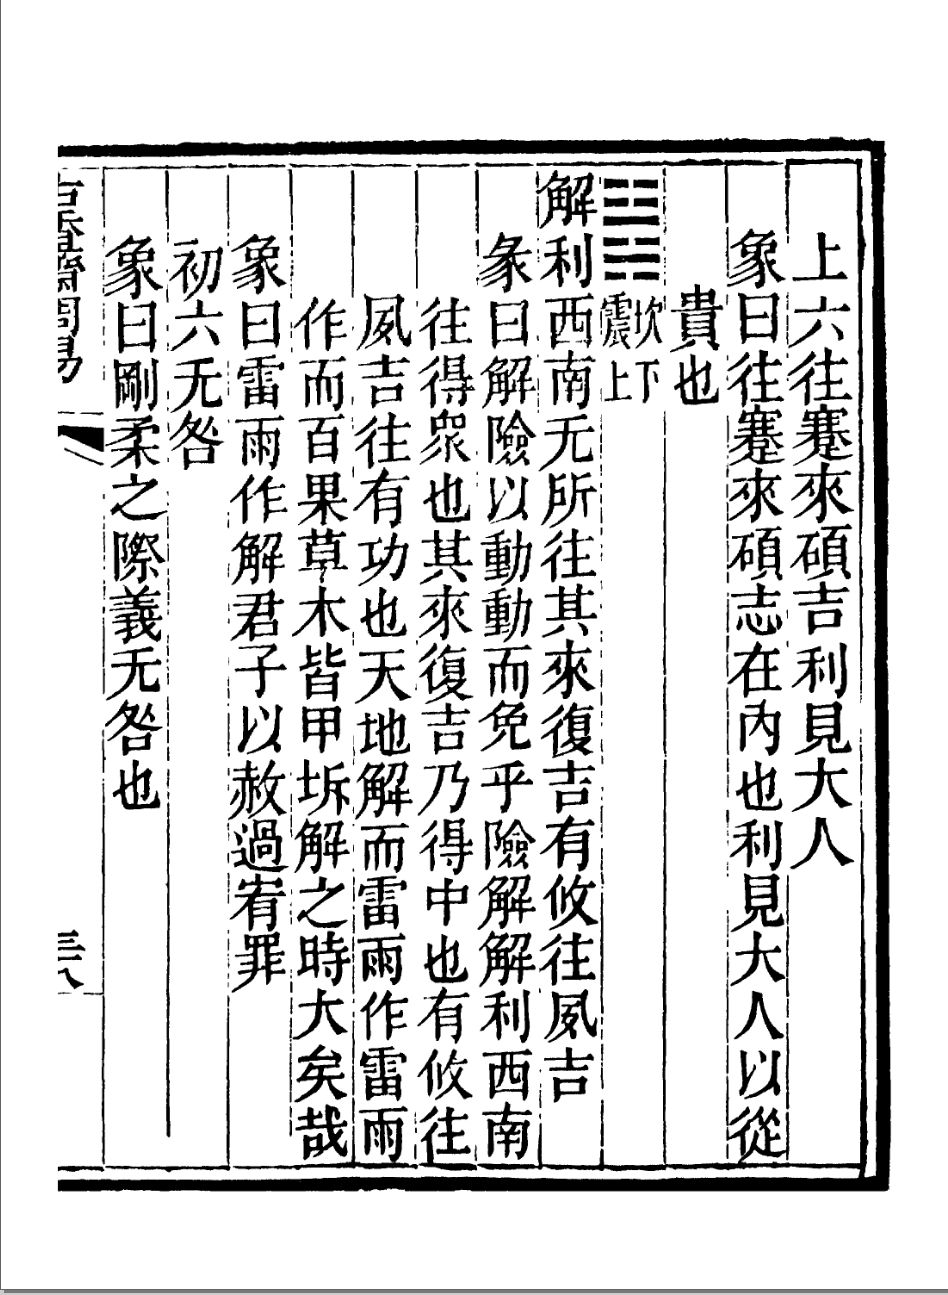 上六往蹇來碩吉利見大人
象曰往蹇來碩志在內也利見大人以從
貴也
䷧坎下震上
解利西南无所往其來復吉有攸往夙吉
彖曰解險以動動而免乎險解解利西南
往得眾也其來復吉乃得中也有攸往
夙吉往有功也天地解而雷雨作雷雨
作而百果草木皆甲坼解之時大矣哉
象曰雷雨作解君子以赦過宥罪
初六无咎
象曰剛柔之際義无咎也
古香齋周易
三八